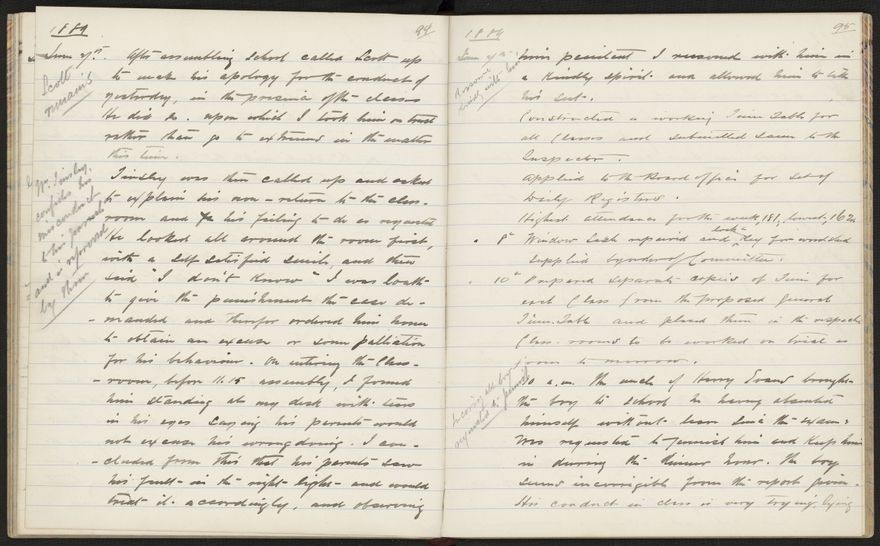 1889
94
June 7th. After assembling School called Scott up
to make his apology for the conduct of
yesterday, in the presence of the classes
He did so. upon which I took him on trust
rather than go to extremes in the matter
this time.
Scott
remains
Tinsley was then called up and asked
to explain his non-return to the class-
room and his failing to do as requested
He looked all around the room first,
with a self satisfied smile, and then
said "I don't know" I was loath
to give the punishment the case de-
manded and therefor ordered him home
to obtain an excuse or some palliation
for his behaviour. On entering the Class-
room, before 11.15 assembly, I found
him standing at my desk with tears
in his eyes saying his parents would
not excuse his wrongdoing. I con-
cluded from this that his parents saw
his fault in the right light and would
treat it accordingly, and observing
Wm. Tinsley
confides his
misconduct
to his parents
and is reproved
by them
1889
95
him penitent I reasoned with him in
a kindly spirit and allowed him to take
his seat.
Constructed a working Time Table for
all Classes and submitted same to the
Inspector
Applied to the Board office for set of
Daily Registers.
Highest attendance for the week, 181, lowest, 162
8th Window Sash repaired and lock & Key for
supplied by order of Committee.
10th Prepared separate copies of Time for
each Class from the proposed general
Time-Table and placed them in the respective
Class-rooms to be worked on trial as
from to morrow.
10 a.m. The uncle of Harry Evans brought
the boy to school he having absented
himself without leave since the exam:
Was requested to punish him and keep him
in during the dinner hour. The boy
seems incorrigible from the report given.
His conduct in class is very trying, lying